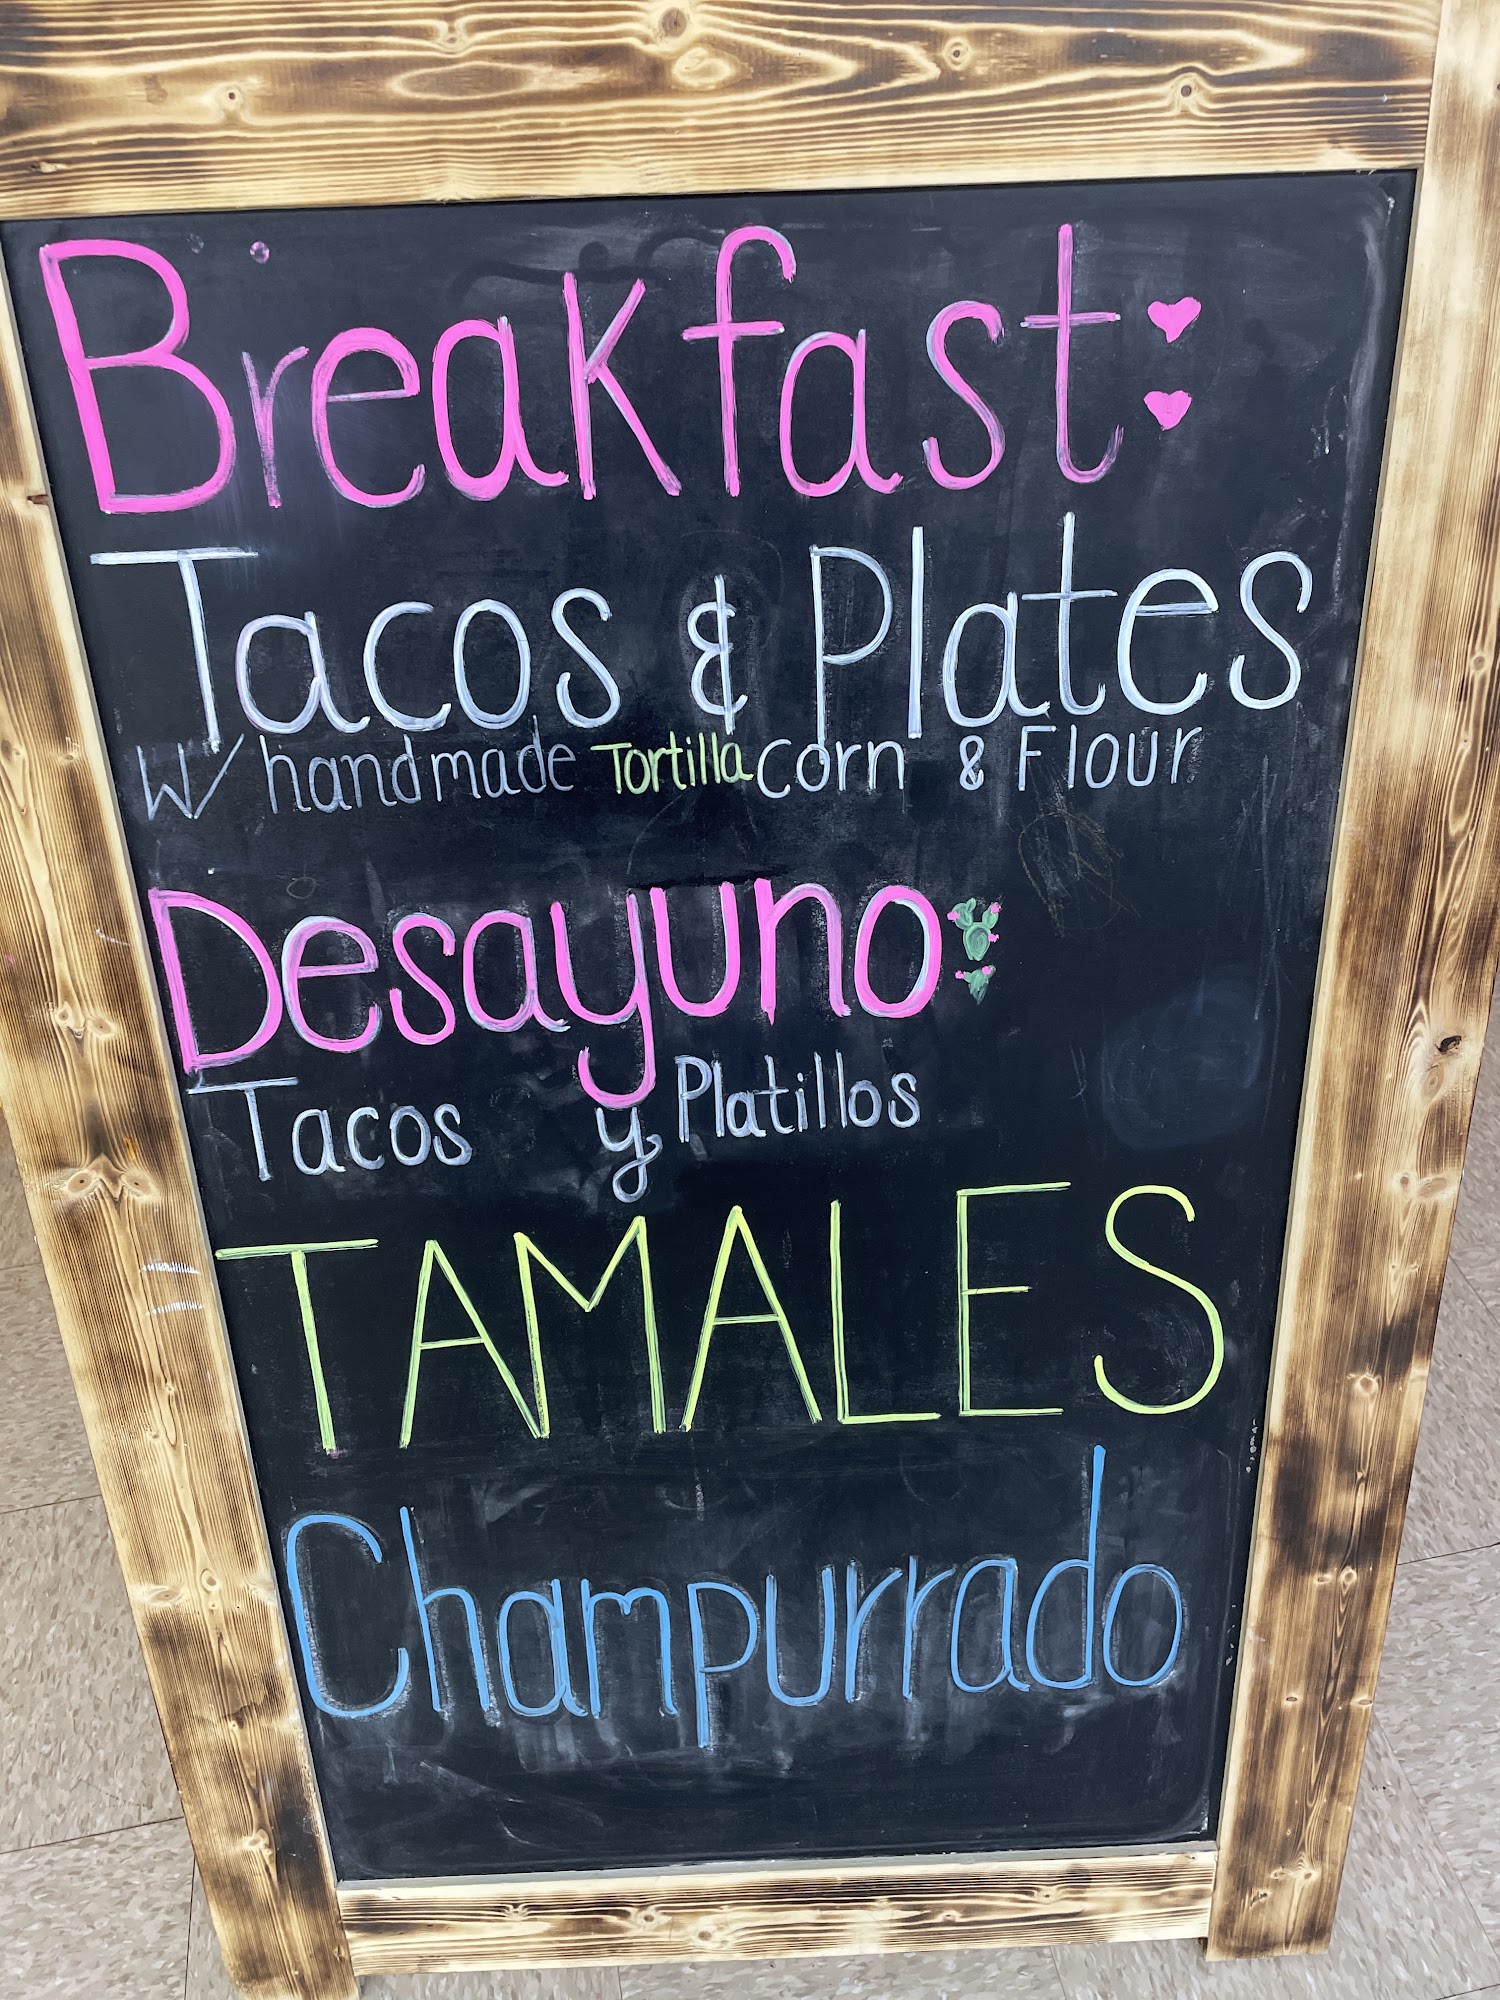 Breakfast:
Tacos & Plates
W/ handmade Tortilla corn & Flour
Desayuno:
Tacos y Platillos
TAMALES
Champurrado